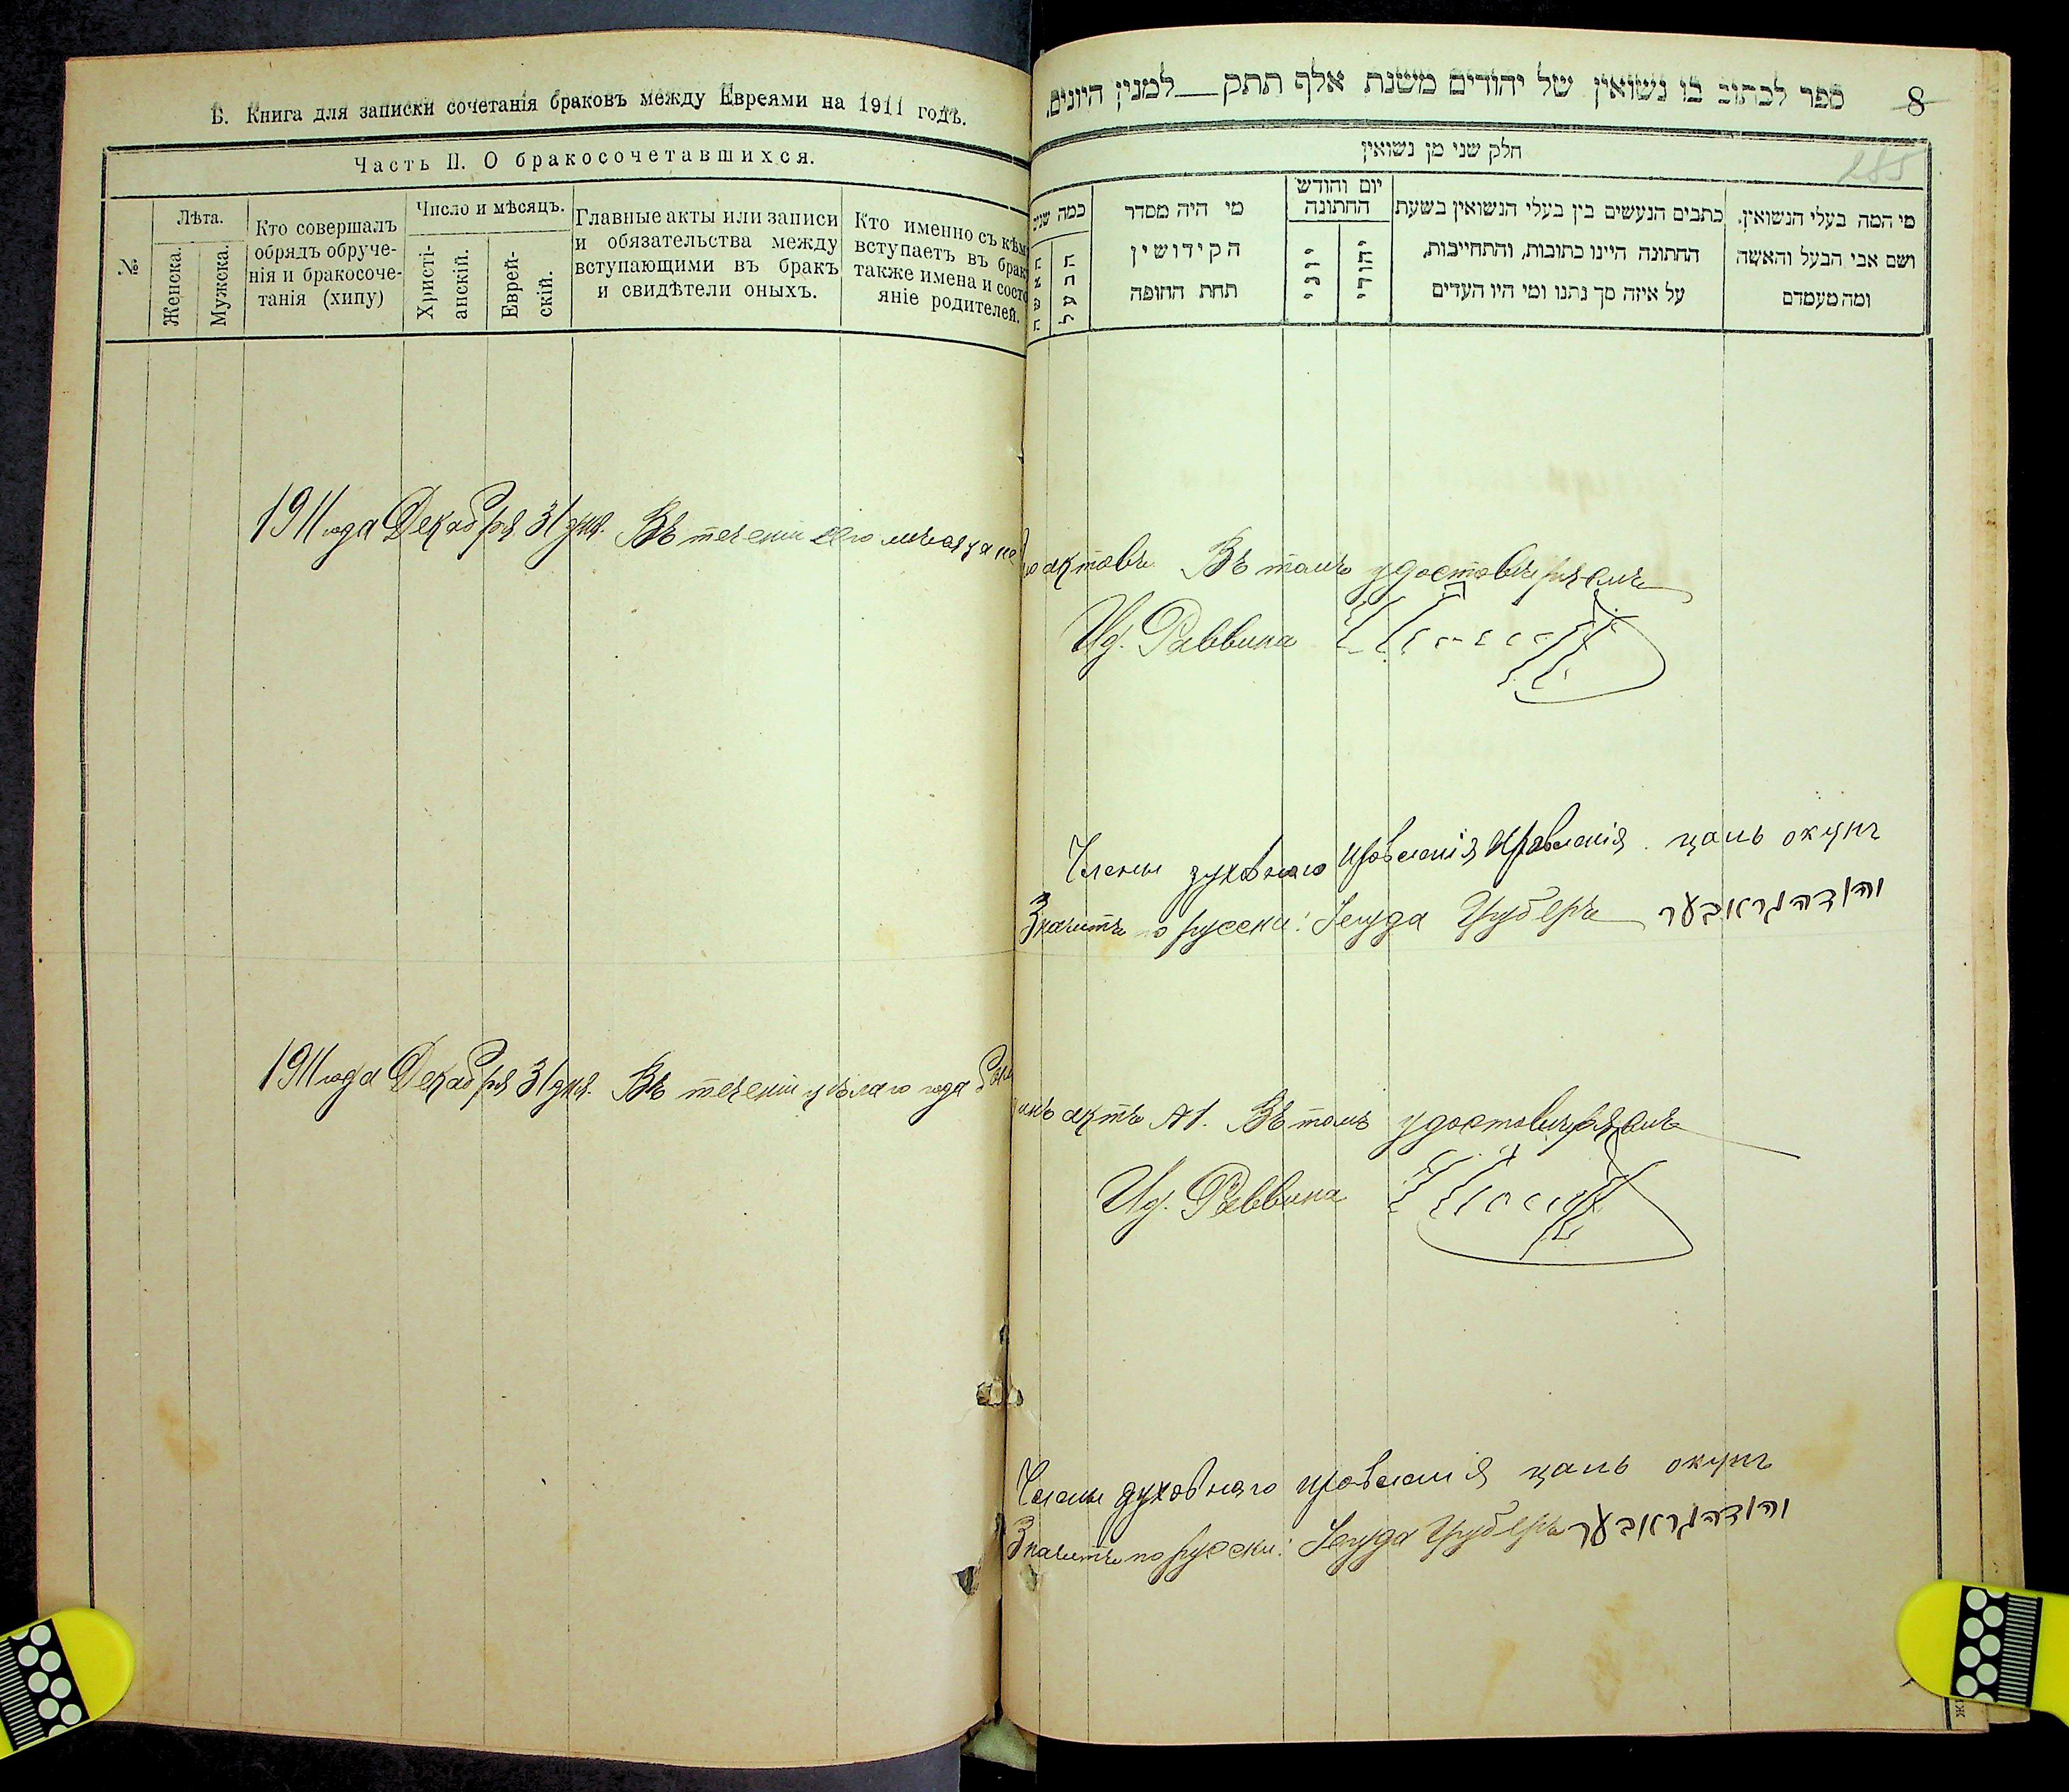 Б. Книга для записки сочетанія браковъ между Евреями на 1911 годъ.
Часть II. О бракосочетавшихся.
№.
Лѣта.
Женска.
Мужска.
Кто совершалъ
обрядъ обруче-
нія и бракосоче-
танія (хипу)
Число и мѣсяцъ.
Христі-
анскій.
Еврей-
скій.
Главные акты или записи
и обязательства между
вступающими въ бракъ
и свидѣтели оныхъ.
Кто именно съ кѣм
вступаетъ въ брак
также имена и состо
яніе родителей.
1911 года Декабря 31 дня. Въ теченіи сего мѣсяца не
1911 года Декабря 31 дня. Въ теченіи цѣлаго года
ספר לכתוב בו נשואין של יהודים משנת אלף תתק__למנין היונים.
8
285
חלק שני מן נשואין
מי המה בעלי הנשואין,
ושם אבי הבעל והאשה
ומה מעמדם
כתבים הנעשים בין בעלי הנשואין בשעת
החתונה היינו כתובות, והתחייבות,
על איזה סך נתנו ומי היו העדים
יום וחודש
החתונה
יהודי
יוני
מי היה מסדר
הקידושין
תחת החופה
כמה שנים
הבעל
האשה
актовъ. Въ томъ удостовѣряемъ
Ид. Раввина
Члены духовнаго правленія правленія
Значитъ по русски: Іегуда Груберъ יהודה גראבער
актъ №1. Въ томъ удостовѣряемъ
Ид. Раввина
Члены духовнаго правленія
Значитъ по русски: Іегуда Груберъ יהודה גראבער